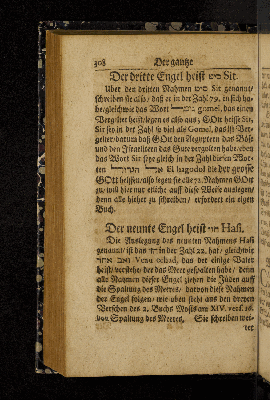 308 Der gantze
Der dritte Engel heist סיט Sit.
Uber den dritten Nahmen סיט Sit genannt/
schreiben sie also/ daß er in der Zahl 79. in sich ha-
be/ gleichwie das Wort גומל gomel, das einen
Vergelter heist/ legen es also aus/ GOtt heisse Sit/
Sit sey in der Zahl so viel als Gomel, das ist/ Ver-
gelter/ darum daß GOtt den Egyptern das Böse
und den Israeliten das Gute vergolten habe/ eben
das Wort Sit seye gleich in der Zahl diesen Wor-
ten אל הגדול El hagadol die der grosse
GOTT heissen/ also legen sie alle 72. Nahmen GOt-
tes/ will hier nur etliche auff diese Weise auslegen/
denn alle hieher zu schreiben/ erfordert ein eigen
Buch.
Der neunte Engel heist Hasi.
Die Auslegung des neunten Nahmens Hasi
genannt/ ist das in der Zahl 22. hat/ gleichwie
ואב אחד Veau echad, das der einige Vater
heist/ verstehe/ der das Meer gespalten habe/ denn
alle Nahmen dieser Engel ziehen die Jüden auff
die Spaltung des Meeres/ darvon diese Nahmen
der Engel folgen/ wie oben steht aus den dreyen
Verschen des 2. Buchs Mosis am XIV. vers. 16.
von Spaltung des Meeres. Sie schreiben wei-
ter